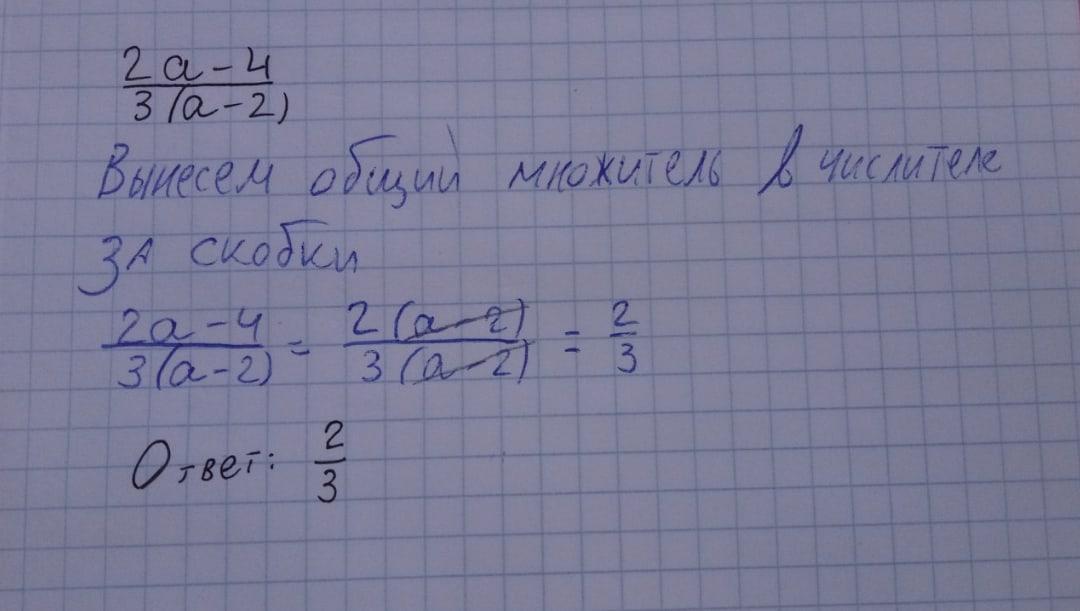 2a-4
3(a-2)
Вынесем общий множитель в числителе
за скобки
2a-4 / 3(a-2) = 2(a-2) / 3(a-2) = 2/3
Ответ: 2/3